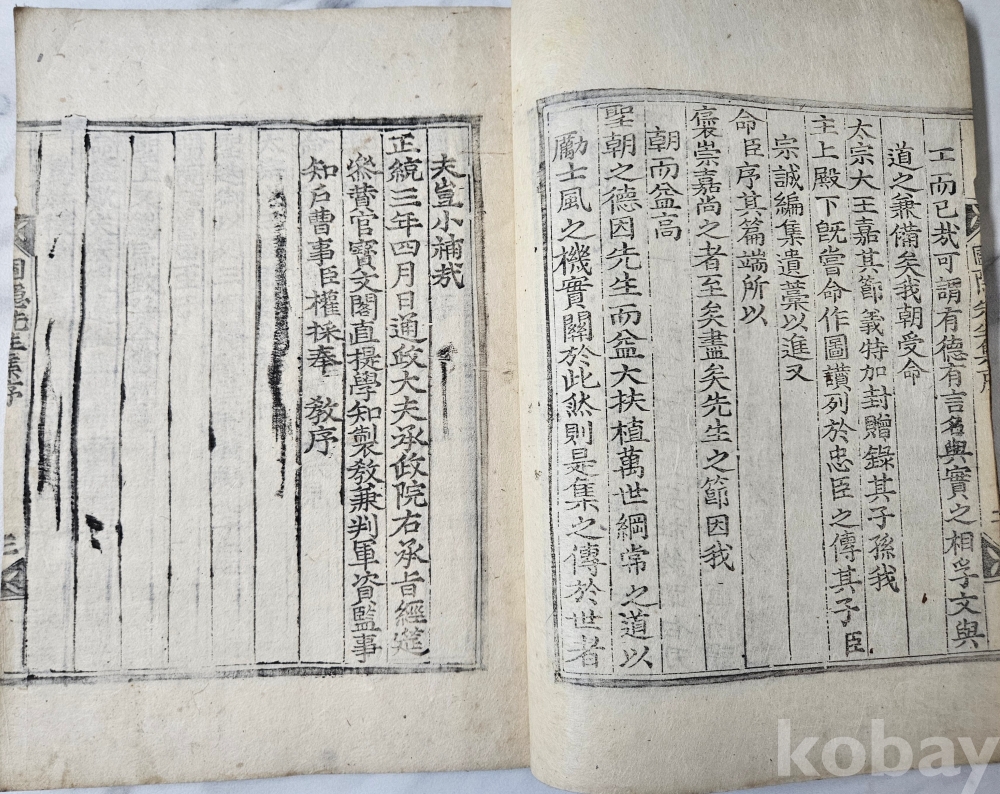 工而已哉可謂有德有言名與實之相孚文與
道之兼備矣我朝受命
太宗大王嘉其節義特加封贈錄其子孫我
主上殿下旣嘗命作圖讚列於忠臣之傳其子臣
宗誠編集遺藁以進又
命臣序其篇端所以
褒崇嘉尚之者至矣盡矣先生之節因我
朝而益高
聖朝之德因先生而益大扶植萬世綱常之道以
勵士風之機實關於此然則是集之傳於世者
夫豈小補哉
正統三年四月日通政大夫承政院右承旨經筵
叅贊官寶文閣直提學知製敎兼判軍資監事
知戶曹事臣權採奉 敎序
圃隱先生集序
三
kobay